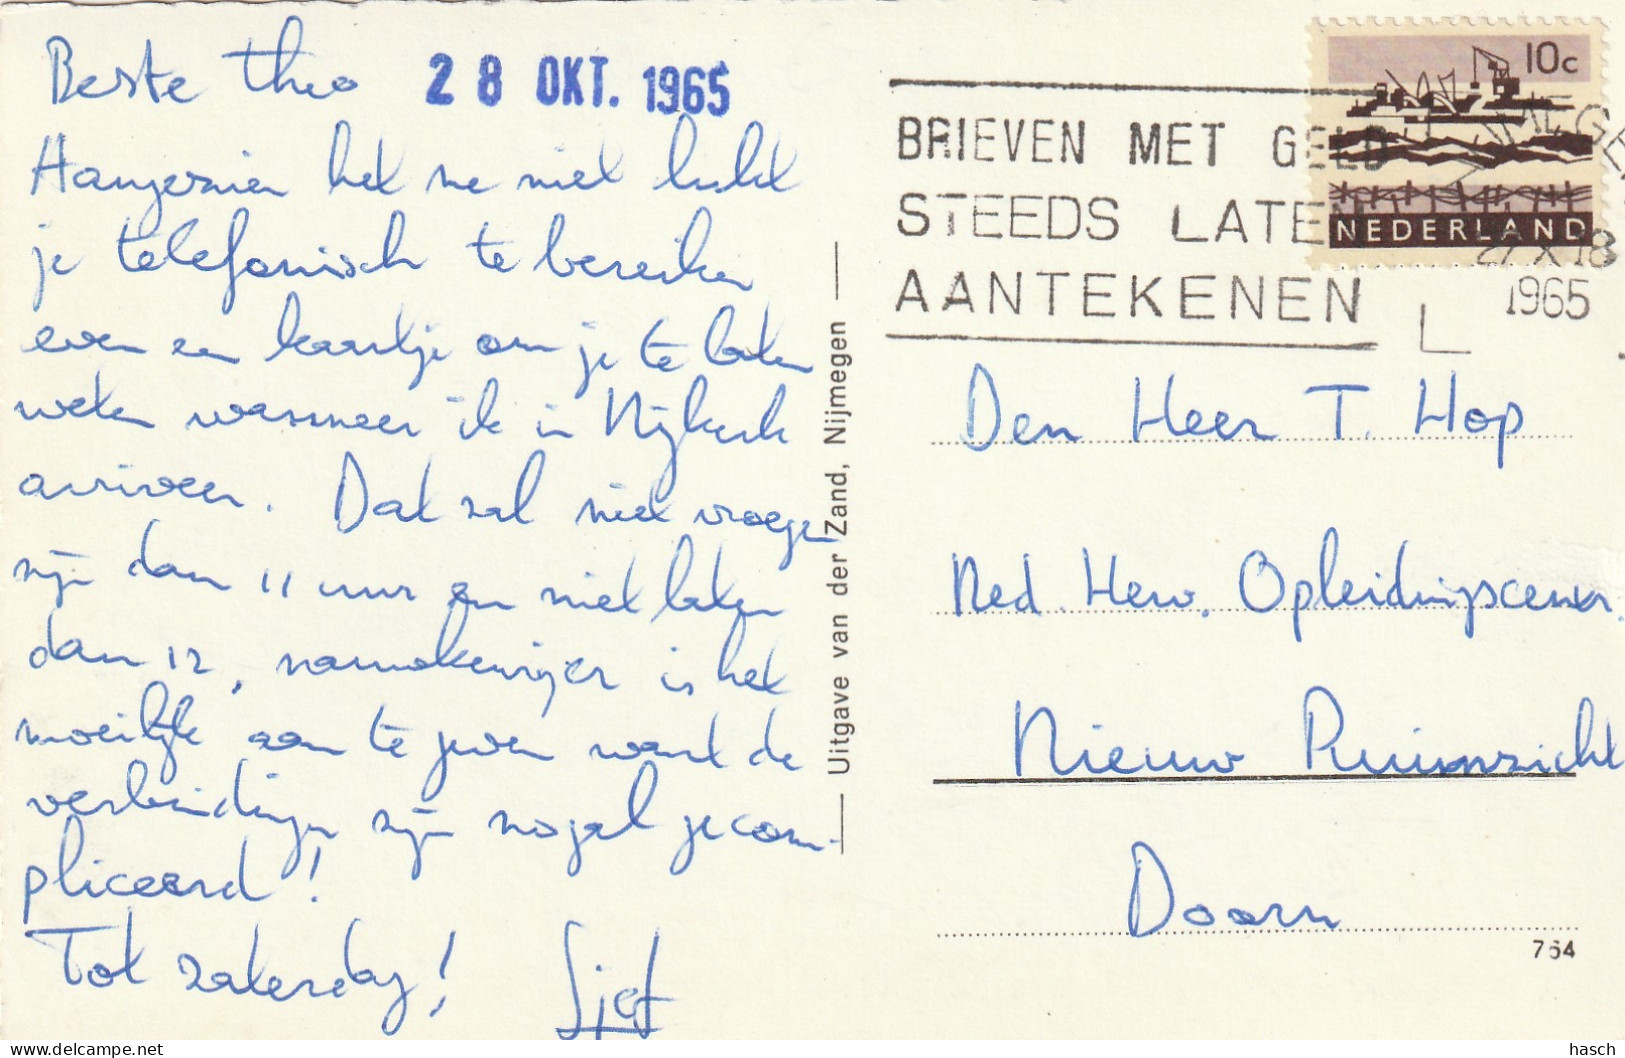 Beste Theo
28 OKT. 1965
Aangezien het me niet lukt
je telefonisch te bereiken
even een kaartje om je te laten
weten wanneer ik in Nijkerk
arriveer. Dat zal niet vroeger
zijn dan 11 uur en niet later
dan 12, nauwkeuriger is het
moeilijk aan te geven want de
verbindingen zijn nogal gecom-
pliceerd!
Tot zaterdag! Sjef
Uitgave van der Zand, Nijmegen
BRIEVEN MET GELD
STEEDS LATEN
AANTEKENEN
10c
NEDERLAND
NIJMEGEN
27 X 18
1965
L
Den Heer T. Hop
Ned. Herv. Opleidingscentr.
Nieuw Ruimzicht
Doorn
764
hasch